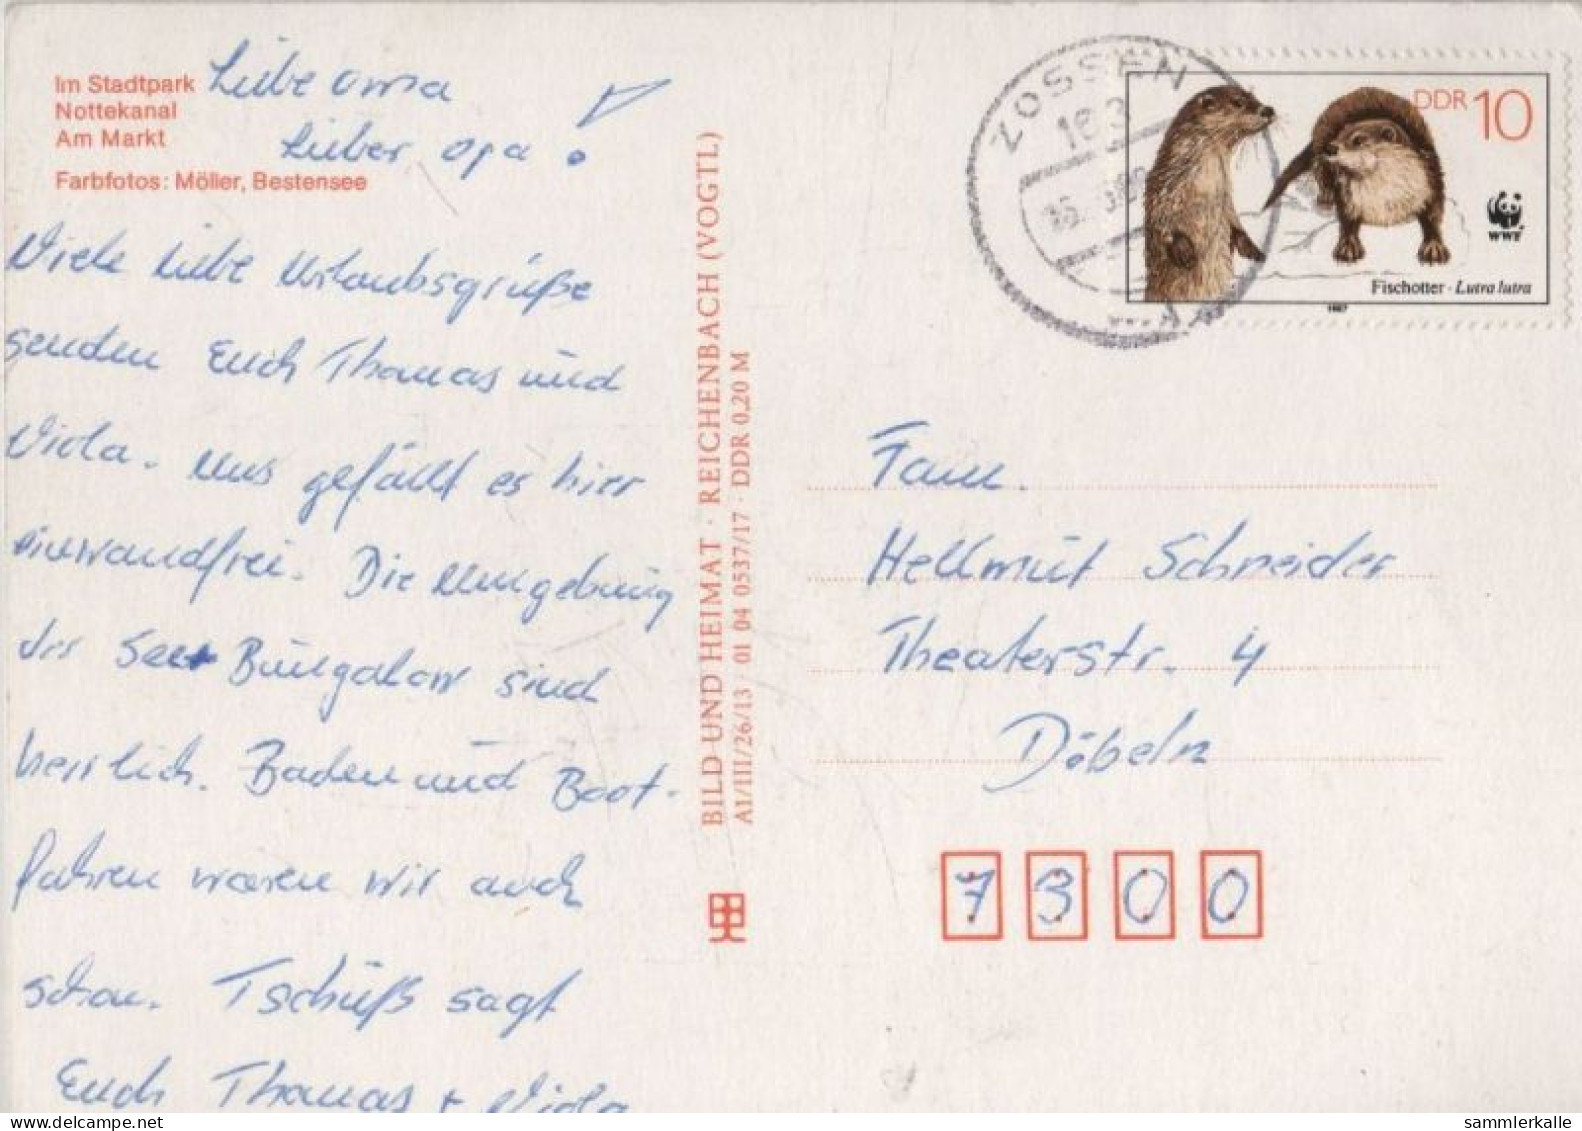 Im Stadtpark
Nottekanal
Am Markt
Farbfotos: Möller, Bestensee
Liebe Oma
Lieber Opa !
Viele liebe Urlaubsgrüße
senden Euch Thomas und
Viola. Uns gefällt es hier
einwandfrei. Die Umgebung
der See Bungalow sind
herrlich. Baden und Boot-
fahren waren wir auch
schon. Tschüß sagt
Euch Thomas + Viola
BILD UND HEIMAT · REICHENBACH (VOGTL)
A1/III/26/13 · 01 04 0537/17 · DDR 0,20 M
ZOSSEN
163
DDR 10
WWF
Fischotter · Lutra lutra
1987
Fam.
Hellmut Schneider
Theaterstr. 4
Döbeln
7300
sammlerkalle